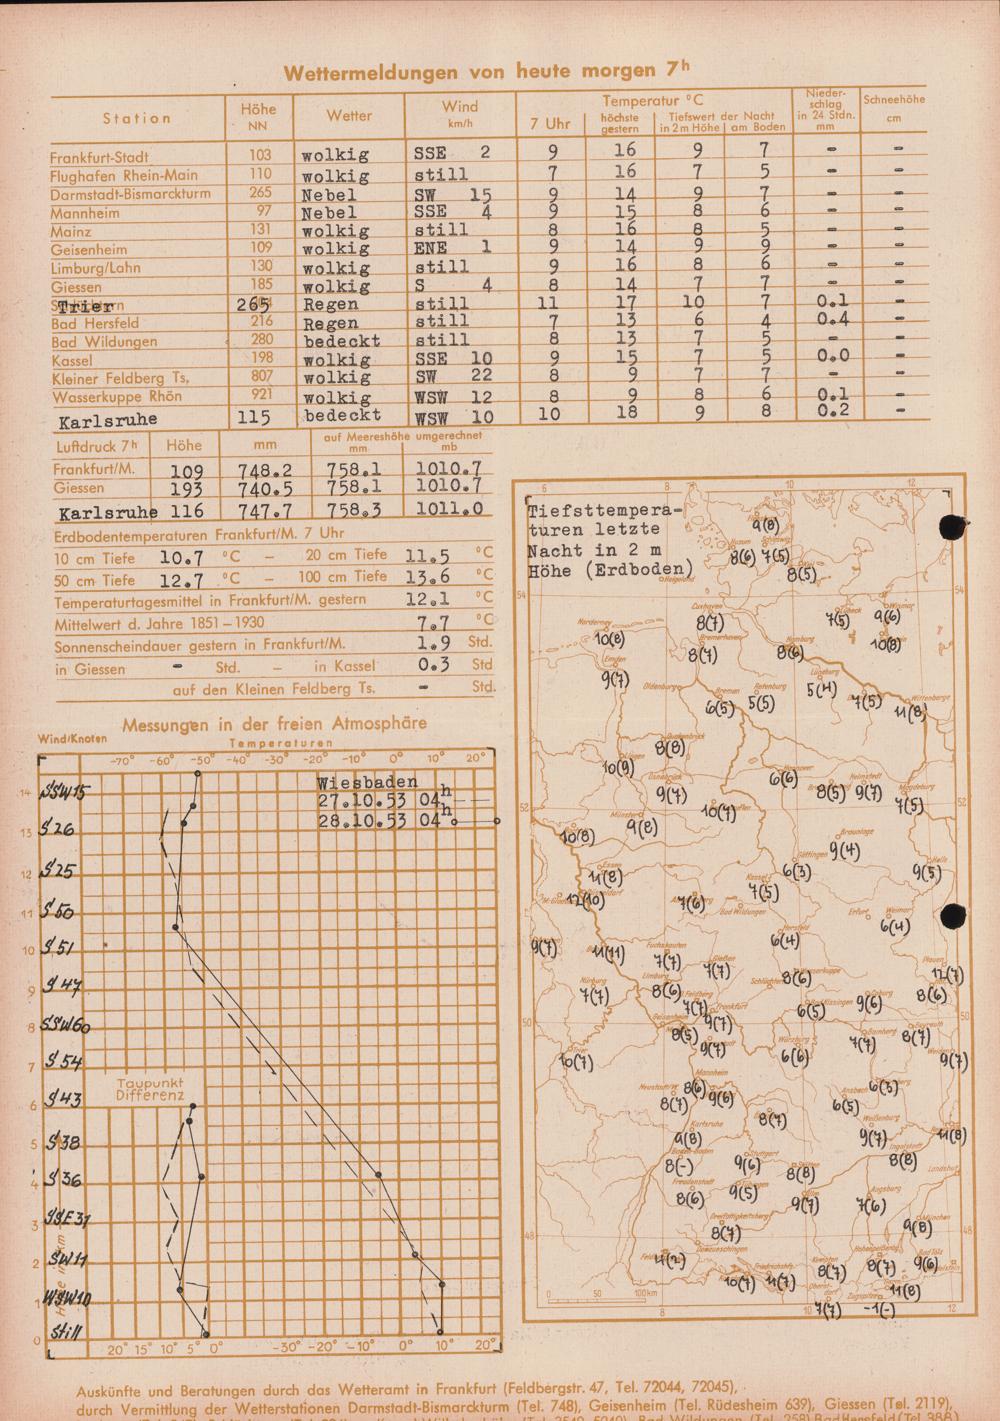 Wettermeldungen von heute morgen 7h
Station Höhe NN Wetter Wind km/h Temperatur °C Nieder-schlag in 24 Stdn. mm Schneehöhe cm
7 Uhr höchste gestern Tiefswert der Nacht in 2 m Höhe am Boden
Frankfurt-Stadt 103 wolkig SSE 2 9 16 9 7 - -
Flughafen Rhein-Main 110 wolkig still 7 16 7 5 - -
Darmstadt-Bismarckturm 265 Nebel SW 15 9 14 9 7 - -
Mannheim 97 Nebel SSE 4 9 15 8 6 - -
Mainz 131 wolkig still 8 16 8 5 - -
Geisenheim 109 wolkig ENE 1 9 14 9 9 - -
Limburg/Lahn 130 wolkig still 9 16 8 6 - -
Giessen 185 wolkig S 4 8 14 7 7 - -
Trier 265 Regen still 11 17 10 7 0.1 -
Bad Hersfeld 216 Regen still 7 13 6 4 0.4 -
Bad Wildungen 280 bedeckt still 8 13 7 5 - -
Kassel 198 wolkig SSE 10 9 15 7 5 0.0 -
Kleiner Feldberg Ts, 807 wolkig SW 22 8 9 7 7 - -
Wasserkuppe Rhön 921 wolkig WSW 12 8 9 8 6 0.1 -
Karlsruhe 115 bedeckt WSW 10 10 18 9 8 0.2 -
Luftdruck 7h Höhe mm auf Meereshöhe umgerechnet mm mb
Frankfurt/M. 109 748.2 758.1 1010.7
Giessen 193 740.5 758.1 1010.7
Karlsruhe 116 747.7 758.3 1011.0
Erdbodentemperaturen Frankfurt/M. 7 Uhr
10 cm Tiefe 10.7 °C – 20 cm Tiefe 11.5 °C
50 cm Tiefe 12.7 °C – 100 cm Tiefe 13.6 °C
Temperaturtagesmittel in Frankfurt/M. gestern 12.1 °C
Mittelwert d. Jahre 1851–1930 7.7 °C
Sonnenscheindauer gestern in Frankfurt/M. 1.9 Std.
in Giessen - Std. – in Kassel 0.3 Std
auf den Kleinen Feldberg Ts. - Std.
Messungen in der freien Atmosphäre
Wind/Knoten Temperaturen
-70° -60° -50° -40° -30° -20° -10° 0° 10° 20°
Wiesbaden
27.10.53 04h
28.10.53 04h
14 SSW15
13 S 26
12 S 25
11 S 50
10 S 51
9 S 47
8 SSW60
7 S 54
Taupunkt
Differenz
6 S 43
5 S 38
4 S 36
3 SSE31
2 SW 11
1 WSW10
0 still
Höhe km
20° 15° 10° 5° 0° -30° -20° -10° 0° 10° 20°
Tiefsttempera-
turen letzte
Nacht in 2 m
Höhe (Erdboden)
6 8 10 12
9(8)
Husum 8(6) 7(5)
8(5)
Helgoland
54 54
Cuxhaven 8(7) Lübeck 7(5) Wismar 9(6)
Norderney 10(8) Bremerhaven 8(7) Hamburg 8(6) 10(8)
Emden 9(7) Oldenburg Bremen 6(5) Rotenburg 5(5) Lüneburg 5(4) 7(5) Wittenberge 11(8)
8(8)
Lingen 10(9) Osnabrück 9(7) Hannover 6(6) 8(5) Helmstedt 9(7) Magdeburg 7(5)
52 52
10(8) Münster 9(8) 10(7) Braunlage 9(4)
Essen 11(8) Göttingen 6(3) Halle 9(5)
12(10) 7(6) Kassel 7(5) Bad Wildungen Erfurt Weimar 6(4)
9(7) 11(11) 7(7) Gießen 7(7) Hersfeld 6(4) Plauen 12(7)
Nürburg 7(7) Limburg 8(6) Feldberg 7(7) Schlüchtern Wasserkuppe 8(6) Coburg 9(6) 8(6)
50 50
Trier 10(7) Geisenheim 8(5) Frankfurt 9(7) Bad Kissingen 6(5) Bamberg 7(7) Bayreuth 8(7)
9(7) Würzburg 6(6) 9(7)
Mannheim 8(6) 9(6) Neustadt 8(7) Ansbach 6(5) 6(3)
Karlsruhe 9(8) 8(7) Weißenburg 9(7) 11(8)
Baden-Baden 8(-) Stuttgart 9(6) 8(8) Ingolstadt 8(8) Landshut
Freudenstadt 8(6) 9(5) Ulm 9(7) Augsburg 7(6)
48 48
8(7) München 9(8)
Feldberg 4(2) Donaueschingen Friedrichshafen 10(7) 11(7) Kempten 8(7) Hohenpeißenberg 8(7) Bad Tölz 9(6)
Oberstdorf 7(7) Zugspitze -1(-) 11(8)
0 50 100km
8 10 12
Auskünfte und Beratungen durch das Wetteramt in Frankfurt (Feldbergstr. 47, Tel. 72044, 72045),
durch Vermittlung der Wetterstationen Darmstadt-Bismarckturm (Tel. 748), Geisenheim (Tel. Rüdesheim 639), Giessen (Tel. 2119),